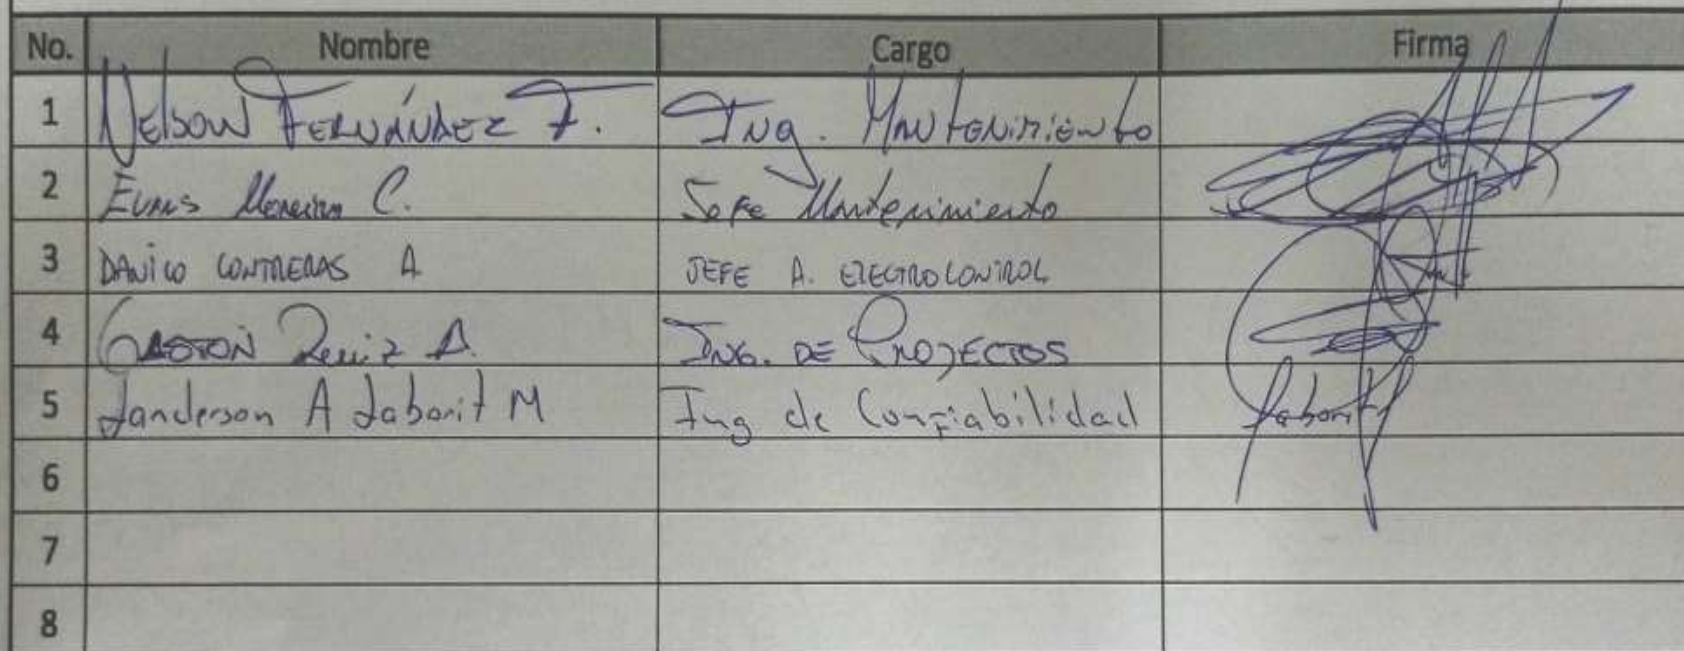 No. Nombre Cargo Firma
1 Nelson Fernández F. Ing. Mantenimiento
2 C. Jefe Mantenimiento
3 DANilo CONTRERAS A JEFE A. ELECTROCONTROL
4 GASTON Ruiz A. ING. DE PROYECTOS
5 Janderson A Jaborit M Ing de Confiabilidad Jaborit
6
7
8